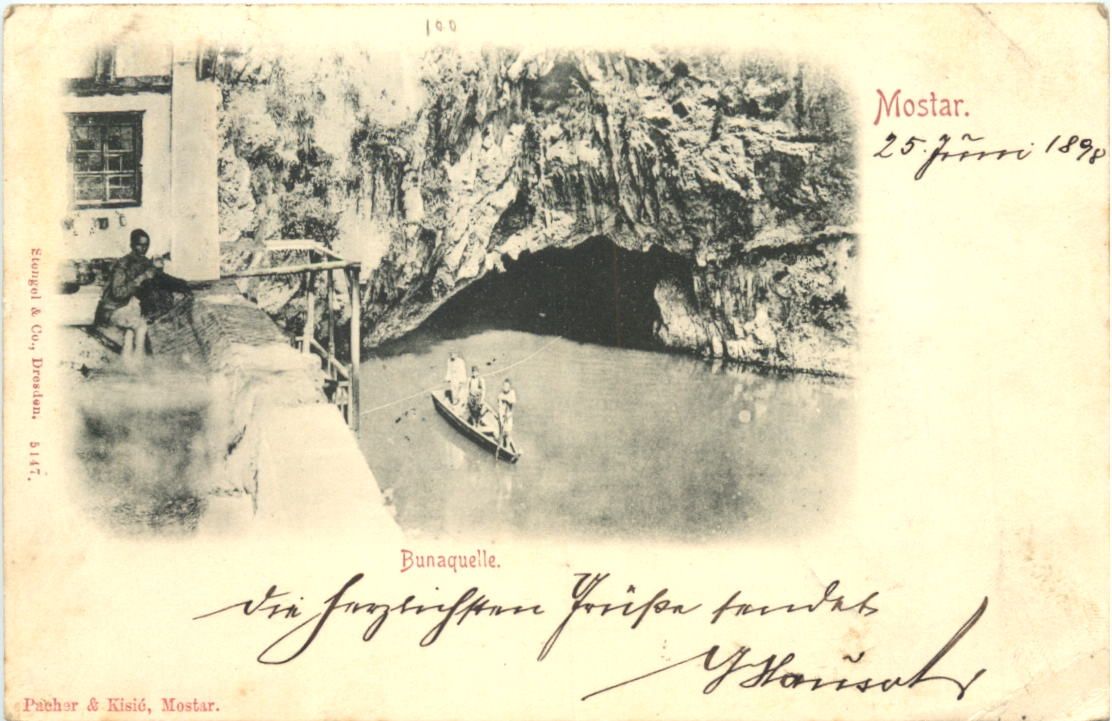 100
Mostar.
25. Juni 1898
Stengel & Co., Dresden. 5147.
Bunaquelle.
Die herzlichsten Grüße sendet
Pacher & Kisić, Mostar.